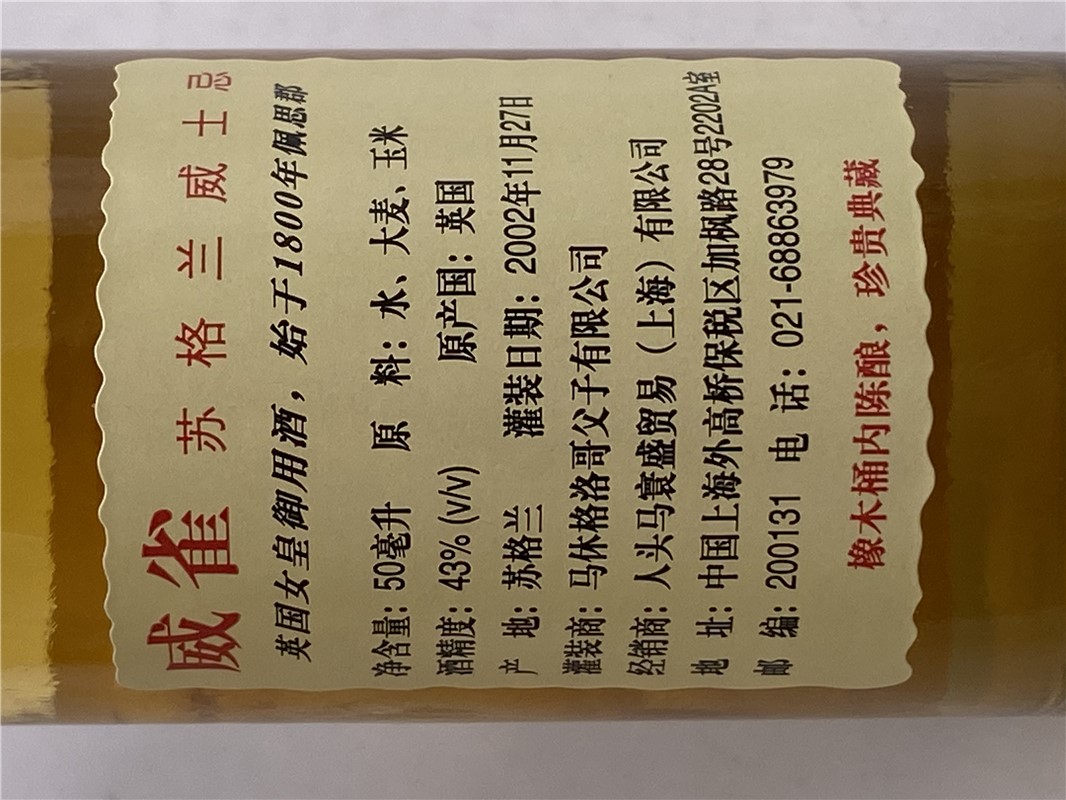 威雀 苏格兰威士忌
英国女皇御用酒，始于1800年佩思郡
净含量：50毫升 原 料：水、大麦、玉米
酒精度：43% (v/v) 原产国：英国
产 地：苏格兰 灌装日期：2002年11月27日
灌装商：马休格洛哥父子有限公司
经销商：人头马寰盛贸易（上海）有限公司
地 址：中国上海外高桥保税区加枫路28号2202A室
邮 编：200131 电 话：021-68863979
橡木桶内陈酿，珍贵典藏